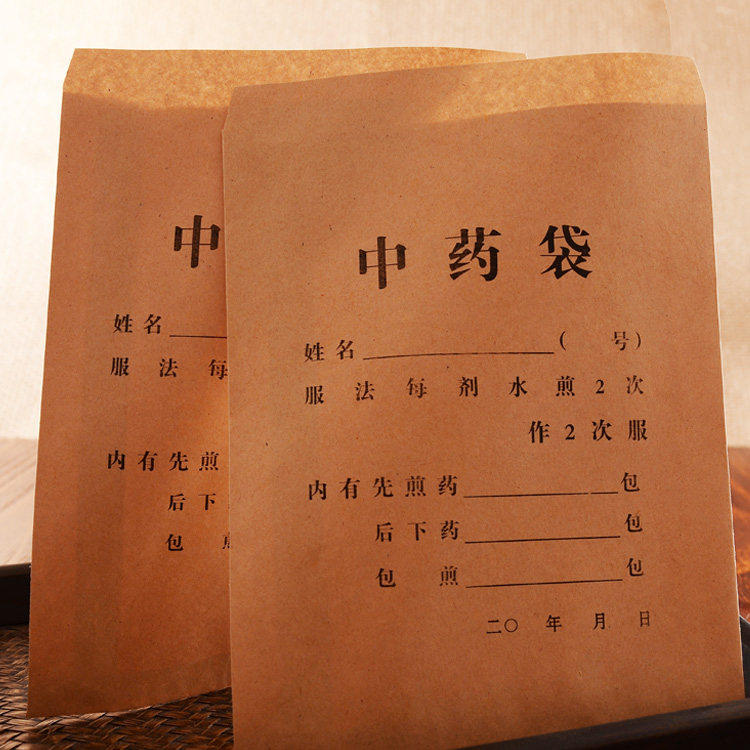 中
姓名
服法每
内有先煎
后下
包
中药袋
姓名＿＿＿＿＿＿(　号)
服法每剂水煎2次
作2次服
内有先煎药＿＿＿＿＿包
后下药＿＿＿＿＿包
包　煎＿＿＿＿＿包
二〇　年　月　日